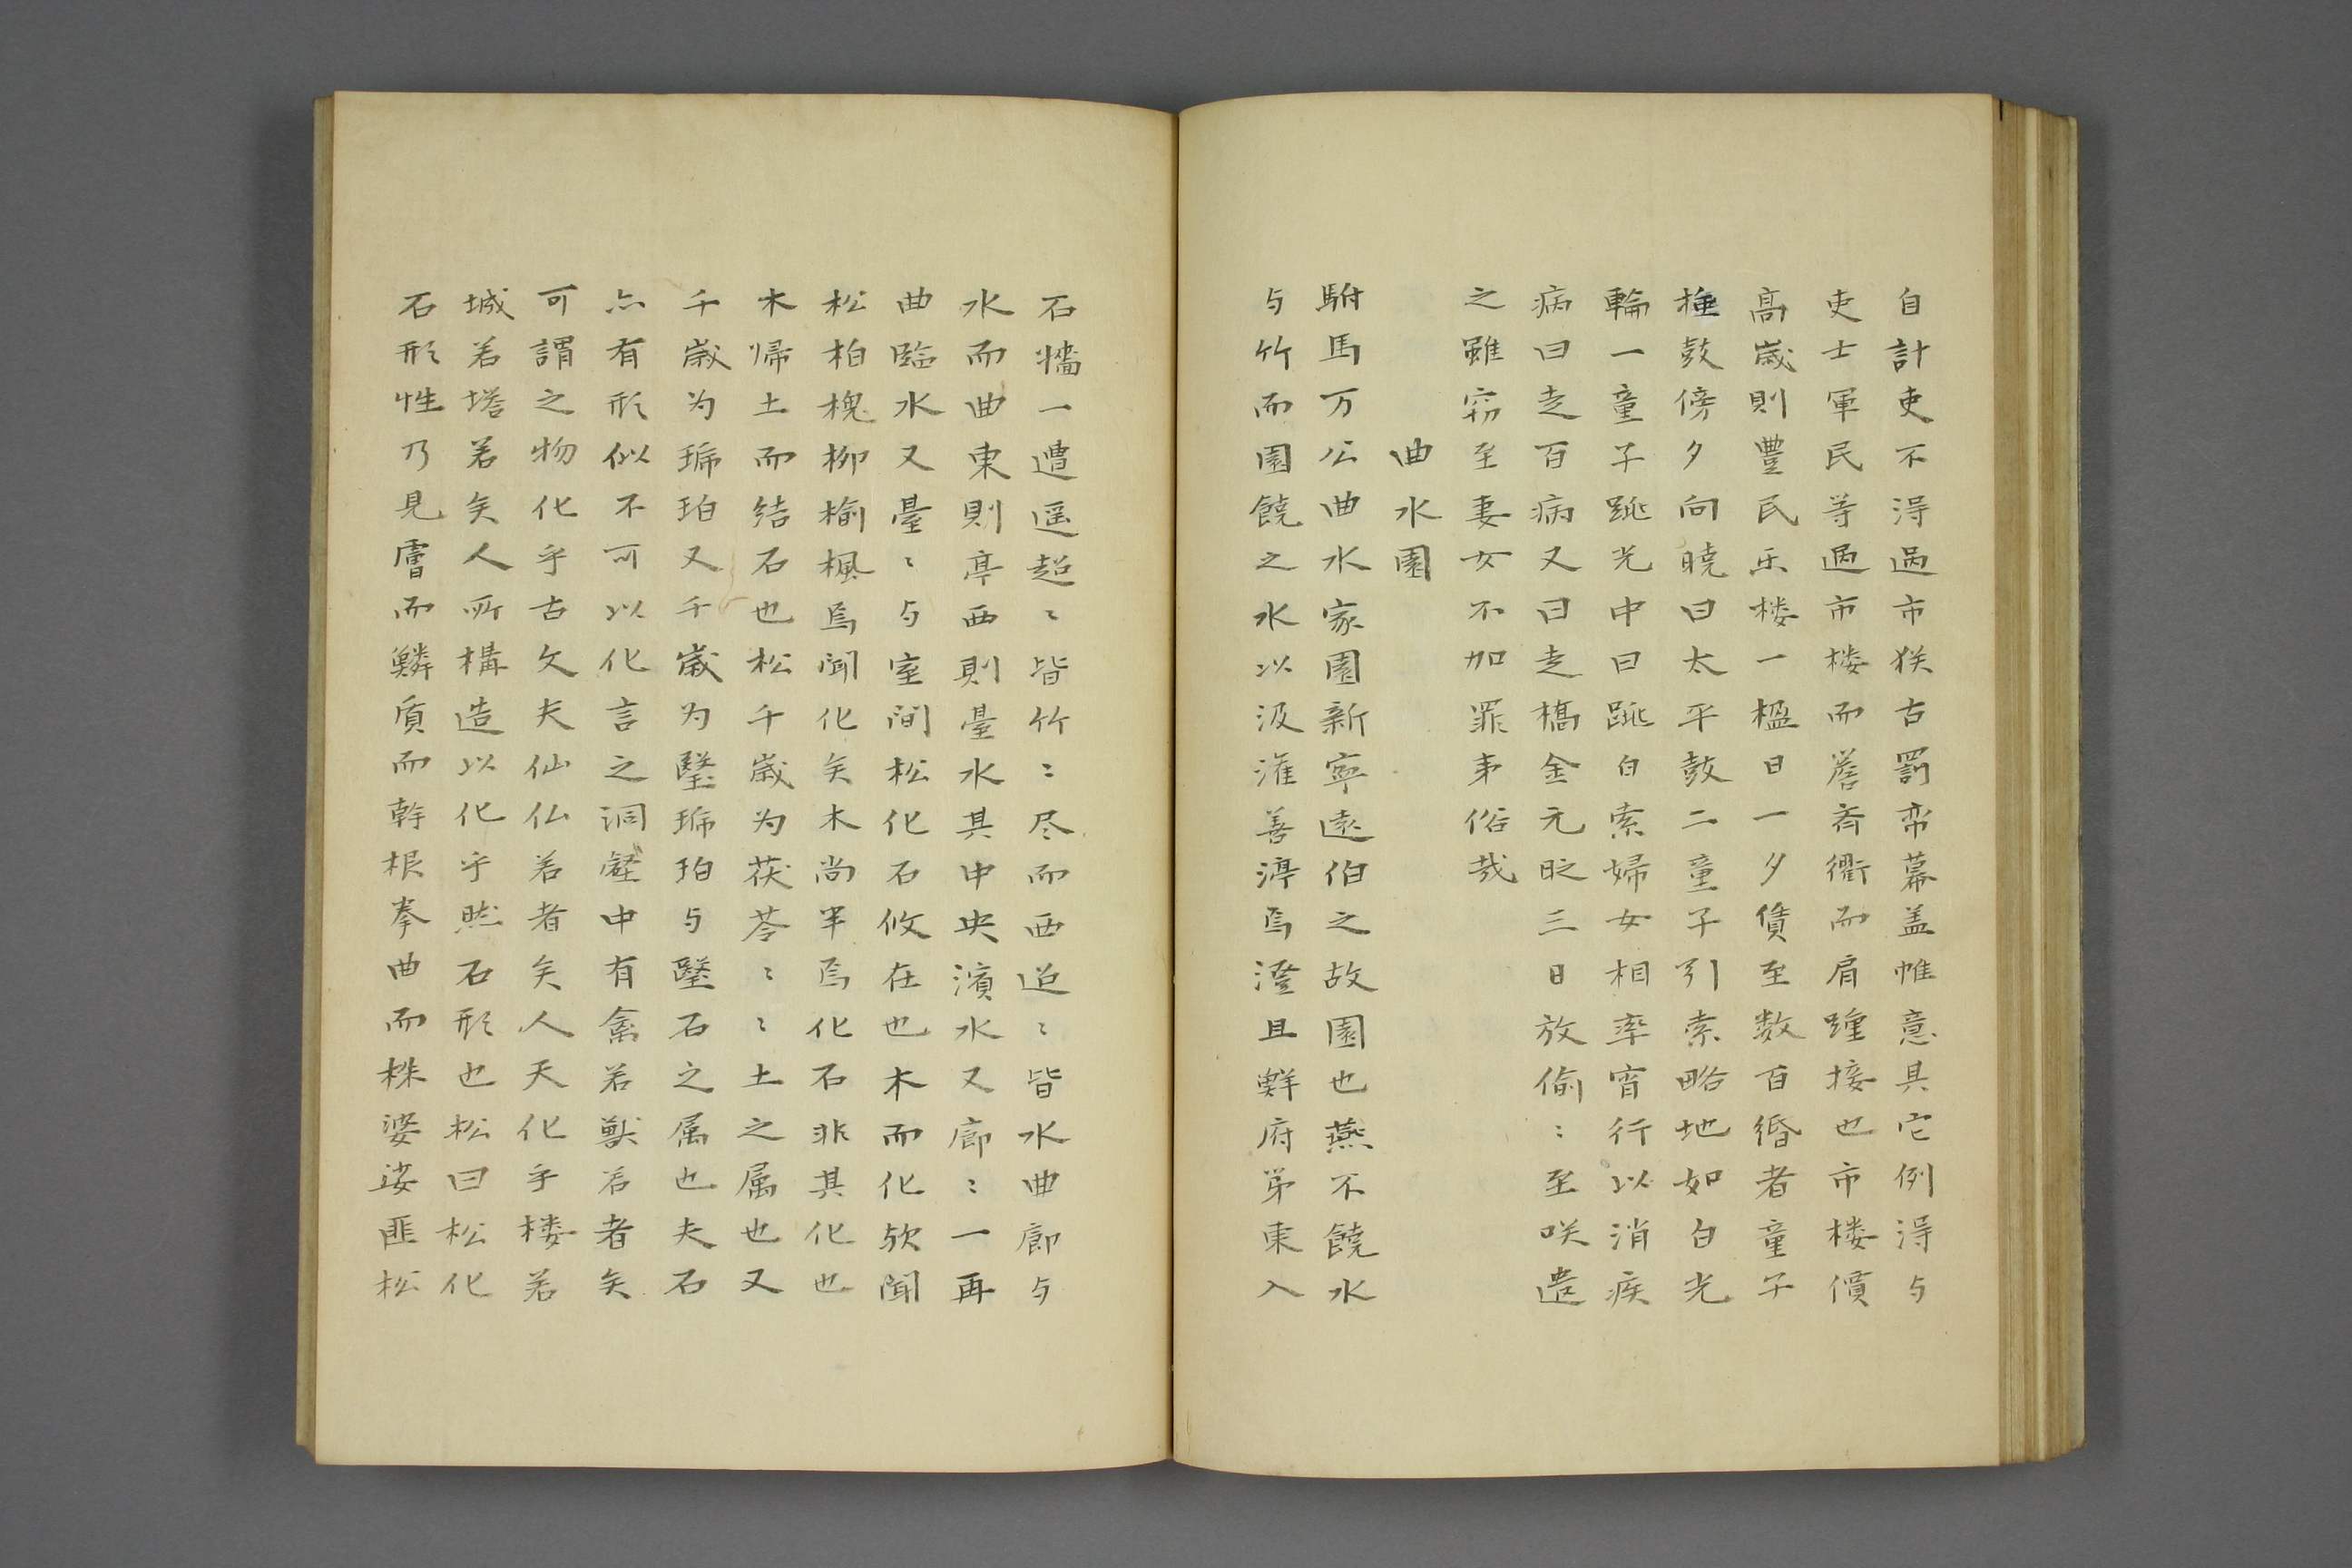 自計吏不淂過市犮古罰帟幕盖帷意具它例淂与
吏士軍民等過市楼而簷斉衢而肩踵接也市楼價
高歳則豊民乐楼一楹日一夕賃至数百緡者童子
捶鼓傍夕向暁曰太平鼓二童子引索略地如白光
輪一童子跳光中曰跳白索婦女相率宵行以消疾
病曰走百病又曰走橋金元时三日放偷〻至咲遣
之雖窃至妻女不加罪夷俗哉
曲水園
駙馬万公曲水家園新寧遠伯之故園也燕不饒水
与竹而園饒之水以汲灌善渟焉澄且鮮府第東入
石墻一遭逕超〻皆竹〻尽而西迢〻皆水曲廊与
水而曲東則亭西則臺水其中央濱水又廊〻一再
曲臨水又臺〻与室間松化石攸在也木而化欤聞
松柏槐柳榆楓焉聞化矣木尚半焉化石非其化也
木帰土而结石也松千歳为茯苓〻〻土之属也又
千歳为琥珀又千歳为瑿琥珀与瑿石之属也夫石
亦有形似不可以化言之洞壑中有禽若獣若者矣
可謂之物化乎古丈夫仙仏若者矣人天化乎楼若
城若塔若矣人所構造以化乎然石形也松曰松化
石形性乃見膚而鱗質而幹根拳曲而株婆娑匪松